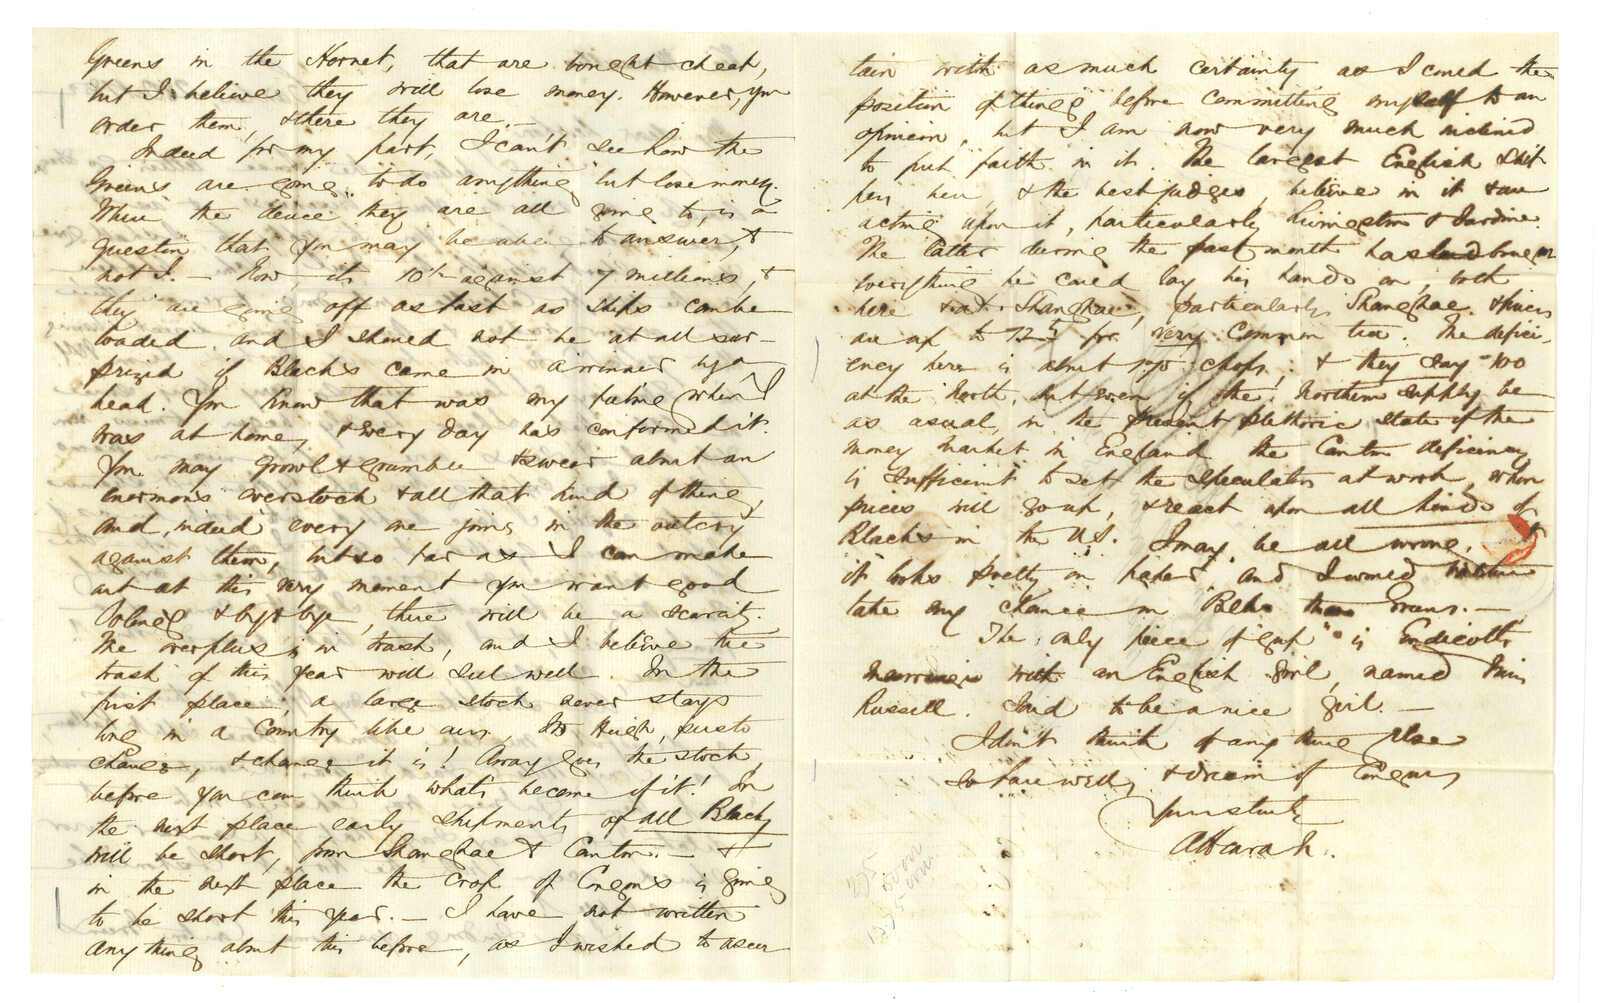 Greens in the Hornet, that are bought cheap,
but I believe they will lose money. However, you
order them, & there they are. —
Indeed for my part, I can't see how the
Greens are going to do anything but lose money.
Where the deuce they are all going to, is a
question that you may be able to answer, &
not I. — Now, its 10 against 7 millions, &
they are going off as fast as ships can be
loaded, and I should not be at all sur-
prized if Blacks came in a winner by a
head. You know that was my feeling when I
was at home, & every day has confirmed it.
You may growl & grumble & swear about an
enormous overstock & all that kind of thing,
and, indeed every one joins in the outcry
against them, but so far as I can make
out at this very moment you want good
Oolong & by & bye, there will be a scarcity.
The overplus is in trash, and I believe the
trash of this year will sell well. In the
first place, a large stock never stays
long in a Country like ours,
change, & change it is! Away goes the stock,
before you can think what's become of it! In
the next place early shipments of all Blacks
will be short, from Shanghae & Canton. — &
in the next place the Crop of Congous is going
to be short this year. — I have not written
anything about this before, as I wished to ascer
tain with as much certainty as I could the
position of things before committing myself to an
opinion, but I am now very much inclined
to put faith in it. The largest English Ship
pers here, & the best judges, believe in it & are
acting upon it, particularly Livingston & Jardine.
The latter during the past month has bought
everything he could lay his hands on, both
here & at Shanghae, particularly Shanghae. & prices
are up to for very Common tea. The defici-
ency here is about chops, & they say 100
at the North, but even if the Northern supply be
as usual, in the present plethoric state of the
money market in England the Canton deficiency
is sufficient to set the speculators at work, when
prices will go up, & react upon all kinds of
Blacks in the U.S. I may be all wrong,
it looks pretty on paper, and I would
take my chance in Blks than Greens. —
The only piece of "gup" is Endicott's
marriage with an English girl, named Miss
Russell. Said to be a nice girl. —
I don't think of any thing else
so farewell, & dream of Congous
Yours truly
A Heard Jr.